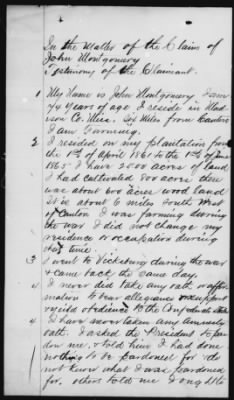 In the Matter of the Claim of
John Montgomery
Testimony of the Claimant.
1 My Name is John Montgomery I am
years of age I reside in Mad-
ison Co. Miss. Six Miles from Canton
I am Farming.
2 I resided on my plantation from
the 1st of April 1861 to the 1st of June
1865. I have 2000 acres of land
I had cultivated 800 acres there
was about 600 acres wood land
It is about 6 miles South West
of Canton I was farming during
the war I did not change my
residence or occupation during
time.
3 I went to Vicksburg during the war
& came back the same day.
4 I never did take any oath or affir-
mation to bear allegiance or support
& yield obedience to the Confederate
4 I have never taken any amnesty
oath. I asked the President to par-
don me, & told him I had done
nothing to be pardoned for & do
not know what I was pardoned
for. others told me I ought to